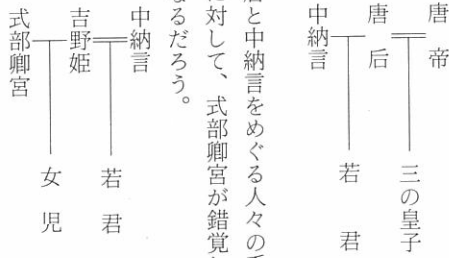 唐帝
三の皇子
唐后
若君
中納言
と中納言をめぐる人々の
対して、式部卿宮が錯覚
なるだろう。
中納言
若君
吉野姫
女児
式部卿宮